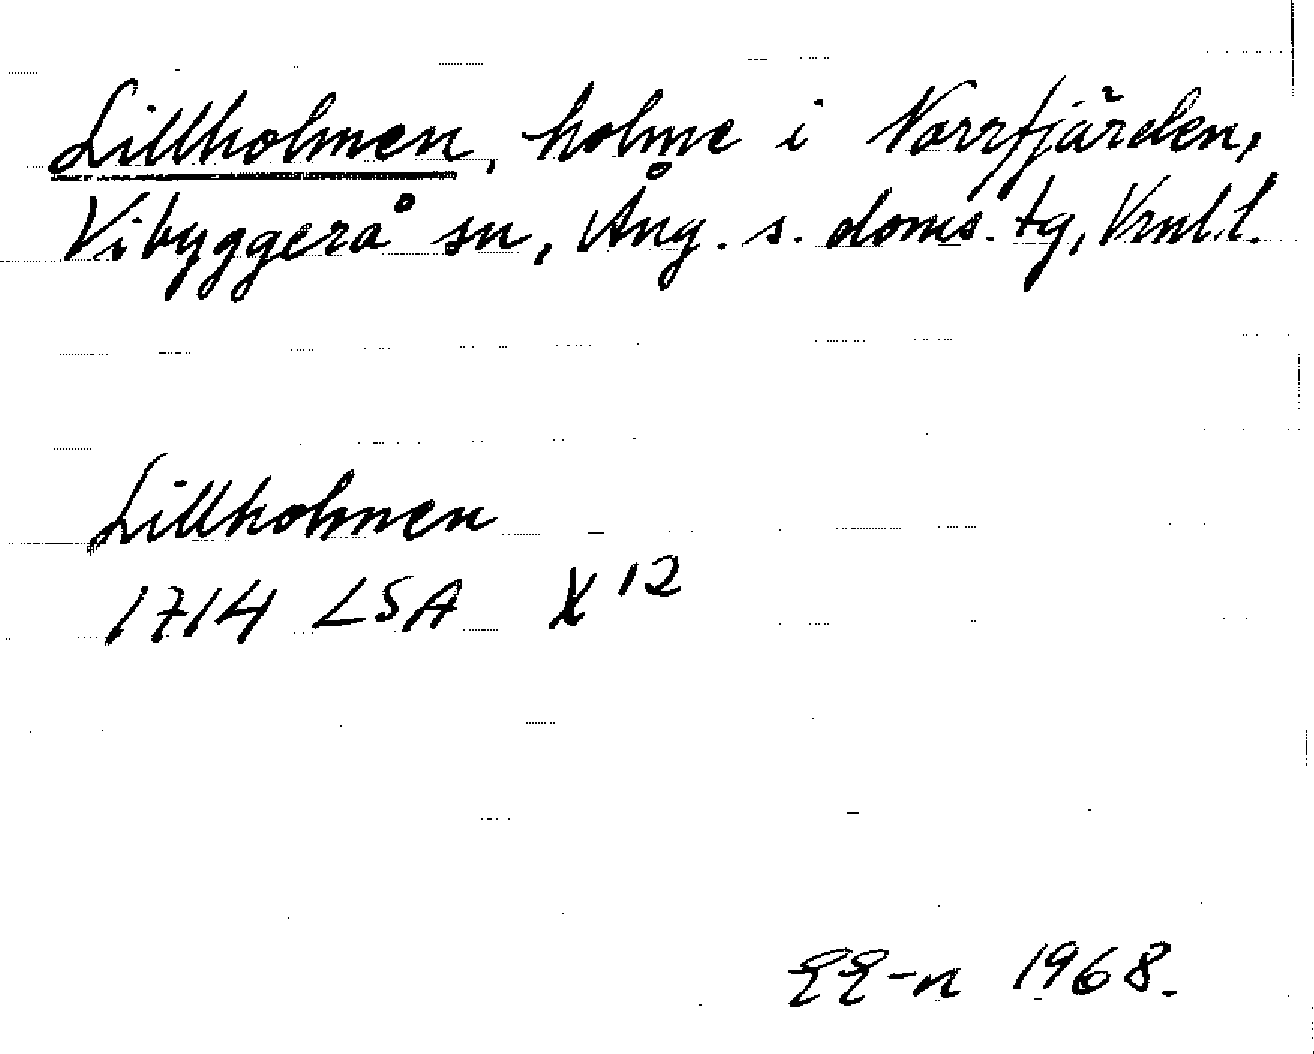 Lillholmen, holme i Norrfjärden,
Vibyggerå sn, Ång. s. doms. tg, Vnl.l.
Lillholmen
1714 LSA X 12
EE-n 1968.